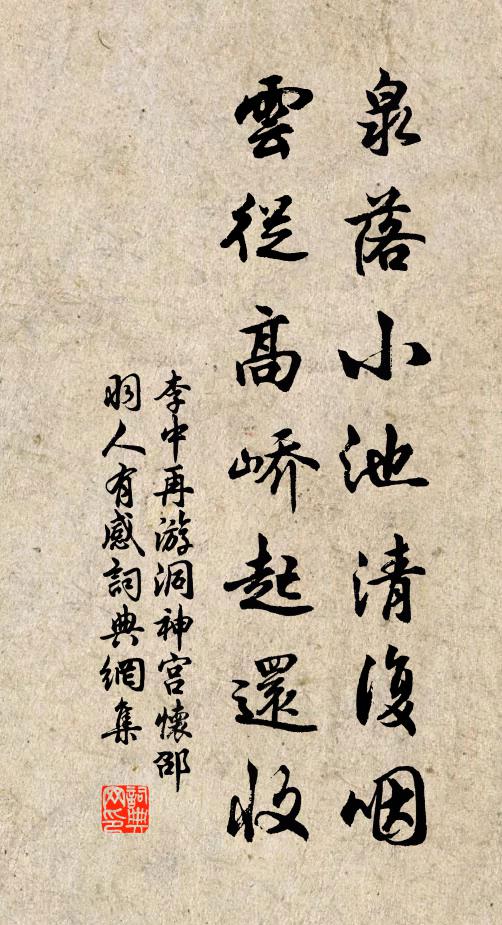 泉落小池清復咽
雲從高嶠起還收
李中再游洞神宮懷邵
羽人有感詞典網集
詞典
网印